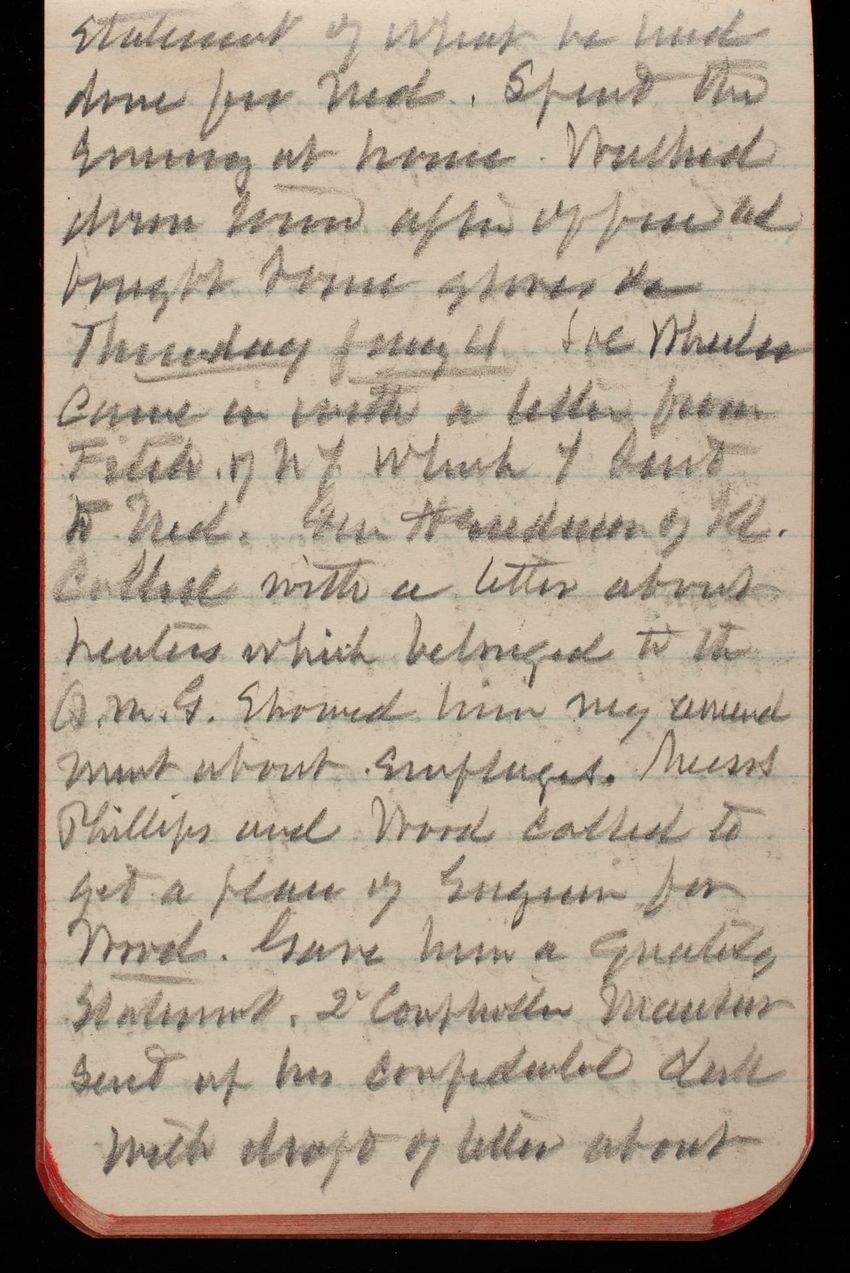 Statement of what he had
done for Ned. Spent the
Evening at home. Walked
down town after office and
bought some gloves &c
Thursday Jany 4 Joe Wheeler
Came in with a letter from
Fitch of N Y which I sent
to Ned. Gen of Ill.
Called with a letter about
heaters which belonged to the
Q.M.G. Showed him my amend
ment about Employees. Messrs
Phillips and Wood called to
get a place of Engineer for
Wood. Gave him a
Statement. 2d Comptroller Mansur
sent up his confidential clerk
with draft of letter about